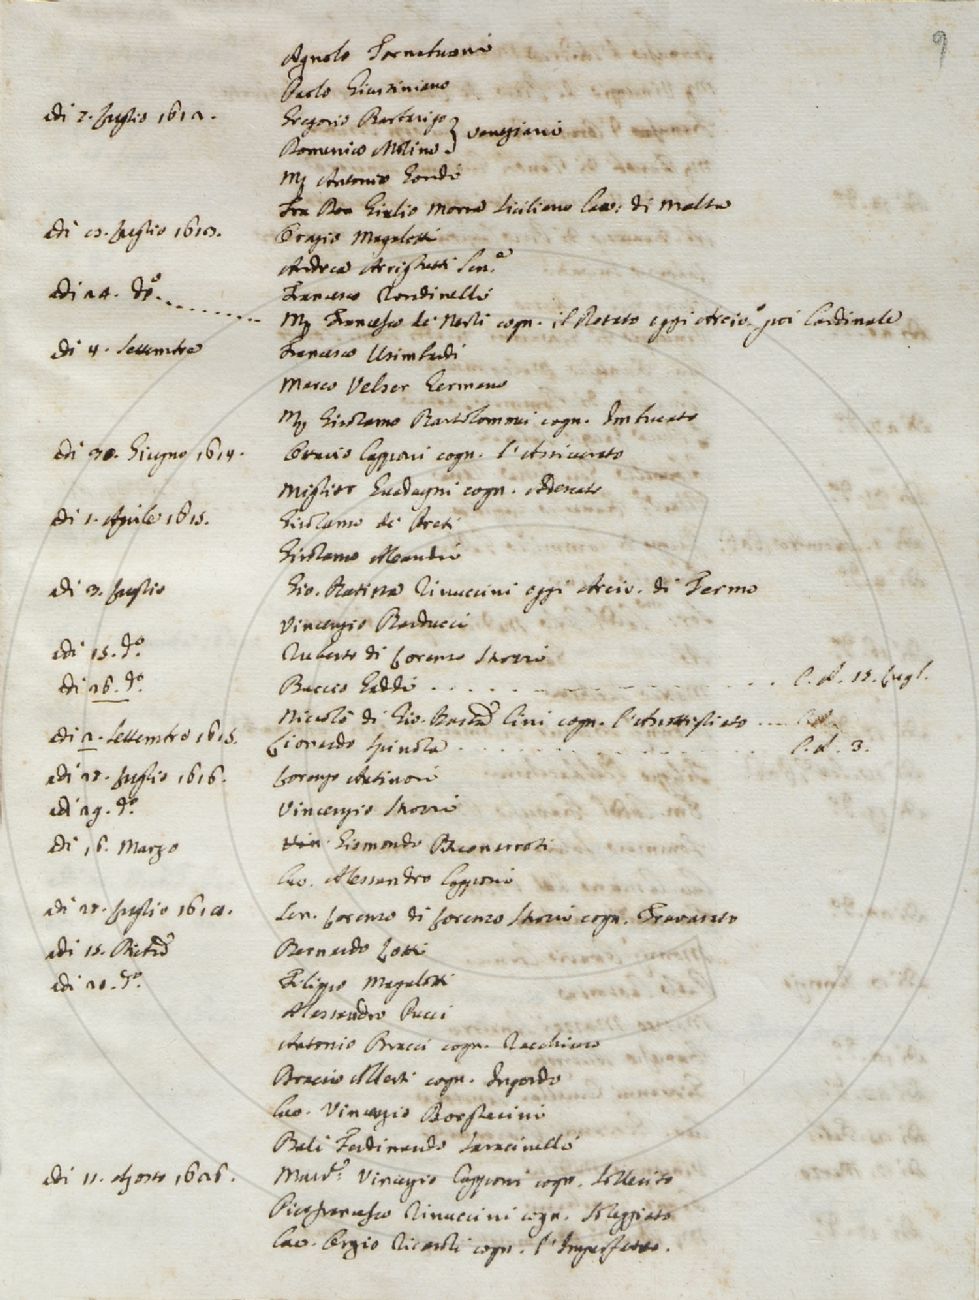 9
Agnolo Fornatuoni
Paolo Giustiniano
Adi 2. Luglio 1612. Gregorio Barbarigo
Domenico Molino } Veneziani
Mr Antonio Gondi
Fra Don Giulio Morra Siciliano Cav: di Malta
Adi Luglio 1613. Orazio Magalotti
Andrea Arrighetti Sen.re
Adi 24. do. Francesco Rondinelli
Mr Francesco de Nerli cogn. il Rotato oggi Arciv.o poi Cardinale
Di 4. Settembre Francesco Usimbardi
Marco Velser Germano
Mr Girolamo Bartolommei cogn. Imbucato
Adi 30. Giugno 1614. Ottavio Capponi cogn. l'Assicurato
Migliore Guadagni cogn. Adescato
Di 1. Aprile 1615. Girolamo de
Girolamo Aleandri
Adi 3. Luglio Gio. Batista Rinuccini oggi Arciv. di Fermo
Vincenzio Barducci
Adi 15. do. Ruberto di Lorenzo Strozzi
Di 26. do. Baccio Gaddi . . . . . . P. d. 15. Lugl.
Niccolò di Gio. Batta Cini cogn. l'
Adi 2. Settembre 1615. Lionardo Spinola . . . . . . P. d. 3.
Adi 28. Luglio 1616. Lorenzo Antinori
Adi 29. do. Vincenzio Strozzi
Adi 16. Marzo Sigismondo Buonarroti
Cav. Alessandro Capponi
Adi Luglio Sen. Lorenzo di Lorenzo Strozzi cogn.
Adi 15. Bernardo Lotti
Adi 20. do. Filippo Magalotti
Alessandro Pucci
Antonio Bracci cogn.
Braccio Alberti cogn. Ingordo
Cav. Vincenzio Borgherini
Balì Ferdinando Saracinelli
Adi 11. Agosto 1626. March.e Vincenzio Capponi cogn. Sollecito
Pierfrancesco Rinuccini cogn.
Cav. Orazio Ricasoli cogn. l'Imperfetto.